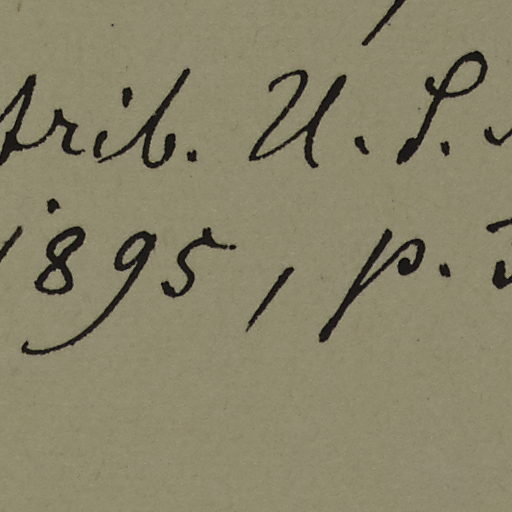 trib. U. S.
1895, p.